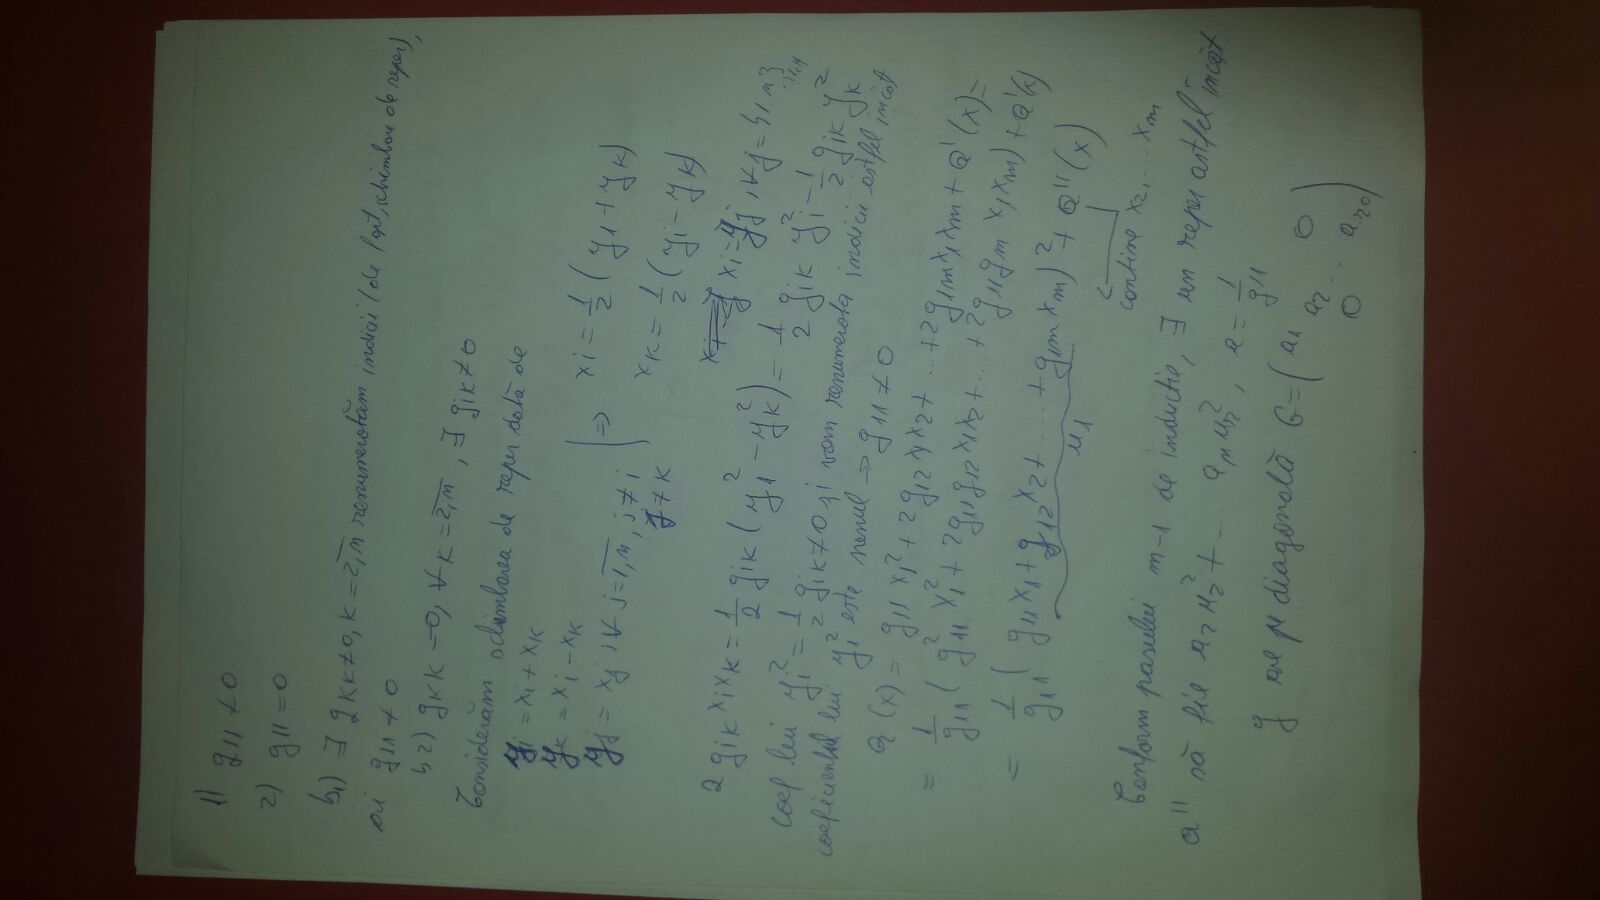 1) g11 ≠ 0
2) g11 = 0
b1) ∃ gKK ≠ 0, K = 2,n renumerotăm indicii (de fapt, schimbare de reper),
g11 ≠ 0
b2) gKK = 0, ∀ K = 2,n, ∃ giK ≠ 0
Considerăm schimbarea de reper dată de
yi = xi + xK
yK = xi - xK
yj = xj, ∀ j = 1,n, j ≠ i
j ≠ K
=> xi = 1/2 (y1 + yK)
xK = 1/2 (yi - yK)
xi = yj, ∀ j =
2 giK xi xK = 1/2 giK (y1² - yK²) = 1/2 giK yi² - 1/2 giK yK²
coef lui yi² = 1/2 giK ≠ 0 și vom renumerota indicii astfel încât
coeficientul lui y1² este nenul => g11 ≠ 0
Q(x) = g11 x1² + 2 g12 x1 x2 + ... + 2 g1m x1 xm + Q'(x) =
= 1/g11 (g11² x1² + 2 g11 g12 x1 x2 + ... + 2 g11 g1m x1 xm) + Q'(x)
= 1/g11 (g11 x1 + g12 x2 + ... + g1m xm)² + Q''(x)
u1
contine x2, ... xm
Conform pasului m-1 de inductie, ∃ un reper astfel încât
Q'' să fie a2 u2² + ... an un², a = 1/g11
g are diagonală G = (a1 0
a2
0 ... an)